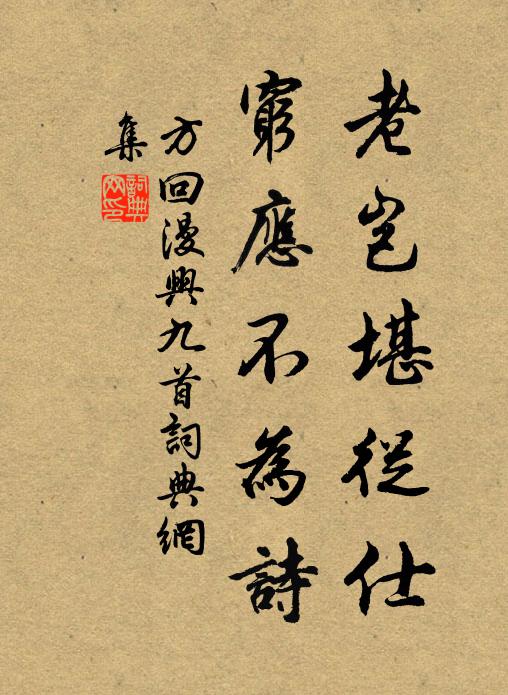 老豈堪從仕
窮應不為詩
方回漫興九首詞典網
集
詞典网印